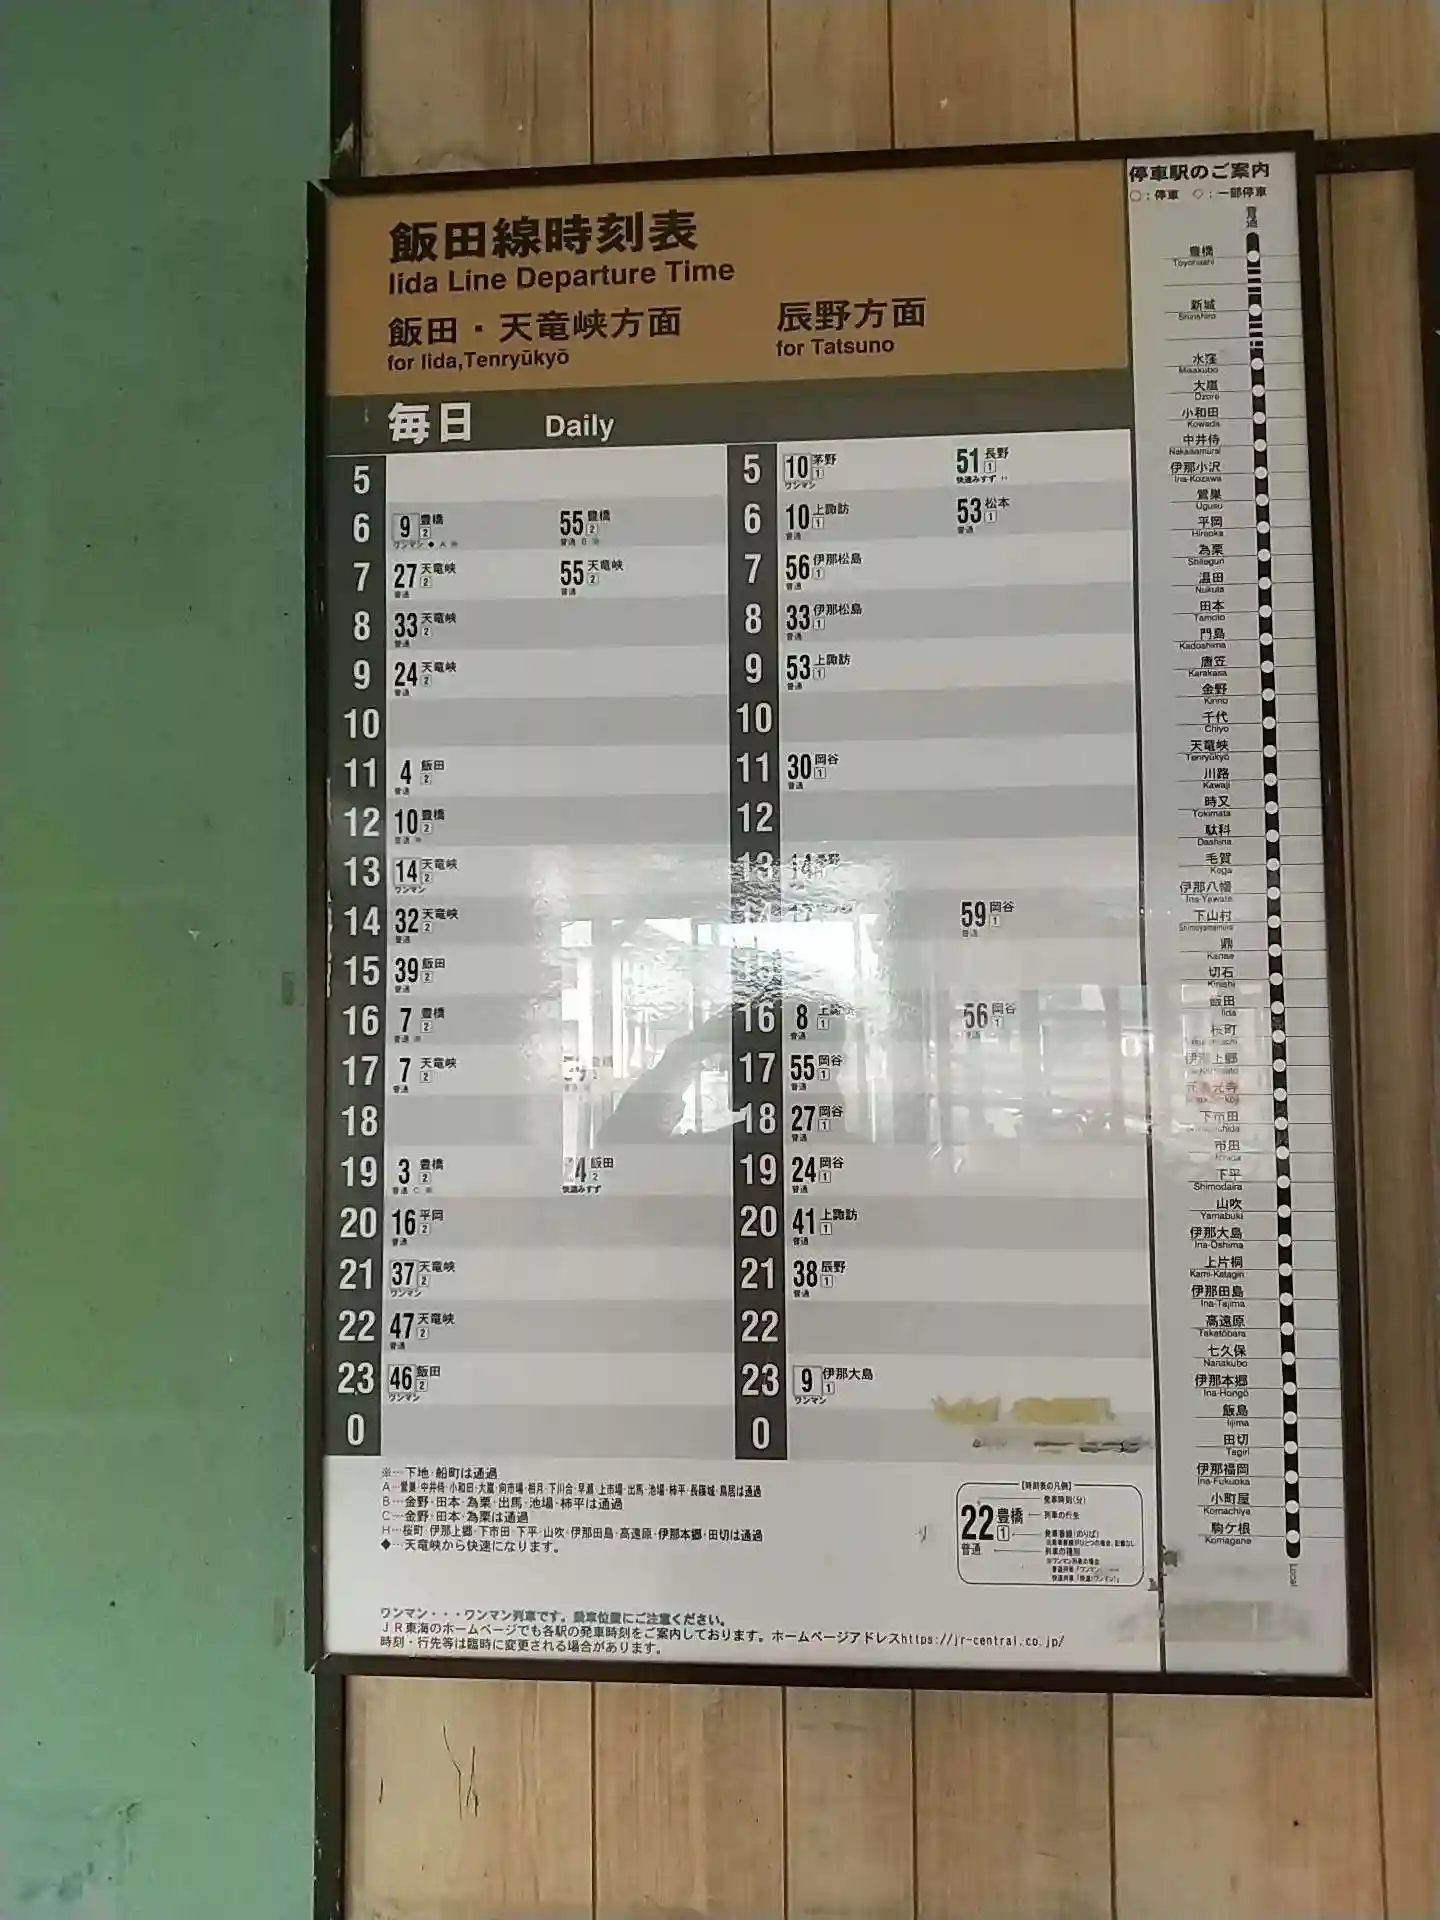 飯田線時刻表
Iida Line Departure Time
飯田・天竜峡方面
for Iida,Tenryūkyō
辰野方面
for Tatsuno
毎日 Daily
5
6 9 豊橋 2 ワンマン ◆ A ※ 55 豊橋 2 普通 B ※
7 27 天竜峡 2 普通 55 天竜峡 2 普通
8 33 天竜峡 2 普通
9 24 天竜峡 2 普通
10
11 4 飯田 2 普通
12 10 豊橋 2 普通 ※
13 14 天竜峡 2 ワンマン
14 32 天竜峡 2 普通
15 39 飯田 2 普通
16 7 豊橋 2 普通 ※
17 7 天竜峡 2 普通 豊橋 2
18
19 3 豊橋 2 普通 C ※ 4 飯田 2 快速みすず
20 16 平岡 2 普通
21 37 天竜峡 2 ワンマン
22 47 天竜峡 2 普通
23 46 飯田 2 ワンマン
0
5 10 茅野 1 ワンマン 51 長野 1 快速みすず
6 10 上諏訪 1 普通 53 松本 1 普通
7 56 伊那松島 1 普通
8 33 伊那松島 1 普通
9 53 上諏訪 1 普通
10
11 30 岡谷 1 普通
12
13 14
14 59 岡谷 1 普通
16 8 上諏訪 1 普通 56 岡谷 1 普通
17 55 岡谷 1 普通
18 27 岡谷 1 普通
19 24 岡谷 1 普通
20 41 上諏訪 1 普通
21 38 辰野 1 普通
22
23 9 伊那大島 1 ワンマン
0
※…下地・船町は通過
A…鶯巣・中井侍・小和田・大嵐・向市場・相月・下川合・早瀬・上市場・出馬・池場・柿平・長篠城・鳥居は通過
B…金野・田本・為栗・出馬・池場・柿平は通過
C…金野・田本・為栗は通過
H…桜町・伊那上郷・下市田・下平・山吹・伊那田島・高遠原・伊那本郷・田切は通過
◆…天竜峡から快速になります。
【時刻表の凡例】
22 豊橋 1 普通
発車時刻(分)
列車の行先
発車番線(のりば)
列車の種別
ワンマン・・・ワンマン列車です。乗車位置にご注意ください。
JR東海のホームページでも各駅の発車時刻をご案内しております。ホームページアドレスhttps://jr-central.co.jp/
時刻・行先等は臨時に変更される場合があります。
停車駅のご案内
○:停車 ◇:一部停車
普通
豊橋 Toyohashi
新城 Shinshiro
水窪 Misakubo
大嵐 Ozore
小和田 Kowada
中井侍 Nakaisamurai
伊那小沢 Ina-Kozawa
鶯巣 Ugusu
平岡 Hiraoka
為栗 Shiteguri
温田 Nukuta
田本 Tamoto
門島 Kadoshima
唐笠 Karakasa
金野 Kinno
千代 Chiyo
天竜峡 Tenryūkyō
川路 Kawaji
時又 Tokimata
駄科 Dashina
毛賀 Kega
伊那八幡 Ina-Yawata
下山村 Shimoyamamura
鼎 Kanae
切石 Kiriishi
飯田 Iida
桜町
伊那上郷
元善光寺
下市田
市田
下平 Shimodaira
山吹 Yamabuki
伊那大島 Ina-Ōshima
上片桐 Kami-Katagiri
伊那田島 Ina-Tajima
高遠原 Takatōbara
七久保 Nanakubo
伊那本郷 Ina-Hongō
飯島 Iijima
田切 Tagiri
伊那福岡 Ina-Fukuoka
小町屋 Komachiya
駒ケ根 Komagane
Local